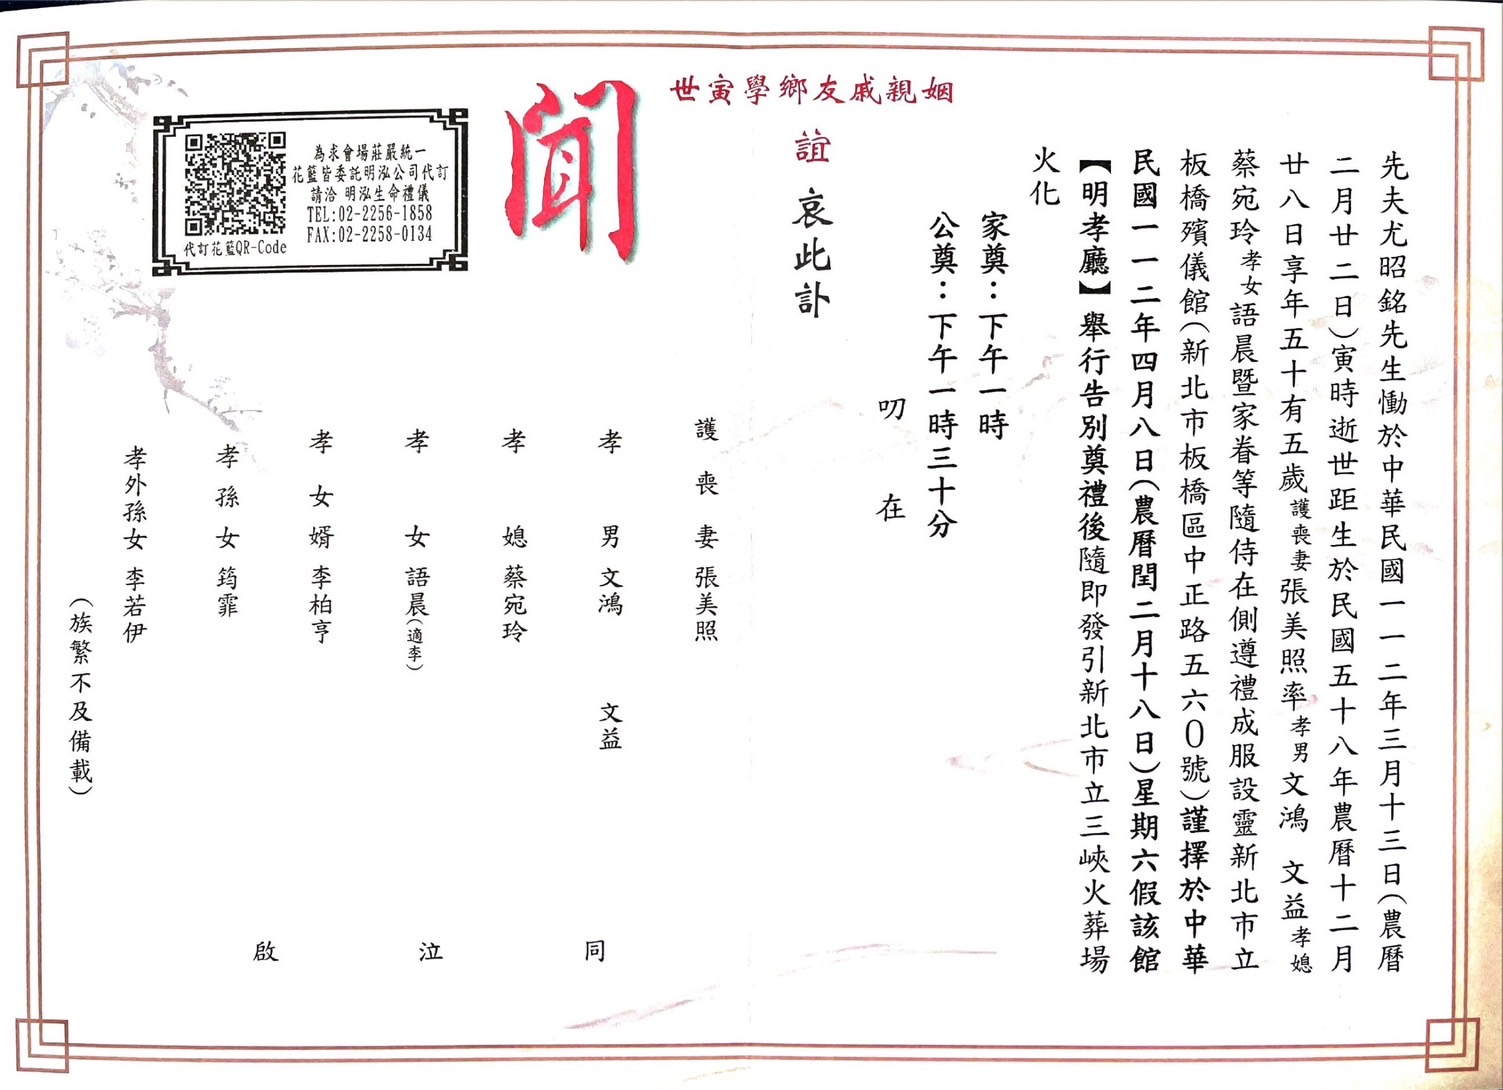 先夫尤昭銘先生慟於中華民國一一二年三月十三日(農曆
二月廿二日)寅時逝世距生於民國五十八年農曆十二月
廿八日享年五十有五歲護喪妻張美照率孝男文鴻 文益孝媳
蔡宛玲孝女語晨暨家眷等隨侍在側遵禮成服設靈新北市立
板橋殯儀館(新北市板橋區中正路五六0號)謹擇於中華
民國一一二年四月八日(農曆閏二月十八日)星期六假該館
【明孝廳】舉行告別奠禮後隨即發引新北市立三峽火葬場
火化
家奠:下午一時
公奠:下午一時三十分
叨在
姻親戚友鄉學寅世
誼 哀此訃
聞
護喪妻 張美照
孝男 文鴻 文益
孝媳 蔡宛玲
孝女 語晨(適李)
孝女婿 李柏亨
孝孫女 筠霏
孝外孫女 李若伊
(族繁不及備載)
同泣啟
為求會場莊嚴統一
花籃皆委託明泓公司代訂
請洽 明泓生命禮儀
TEL:02-2256-1858
FAX:02-2258-0134
代訂花籃QR-Code